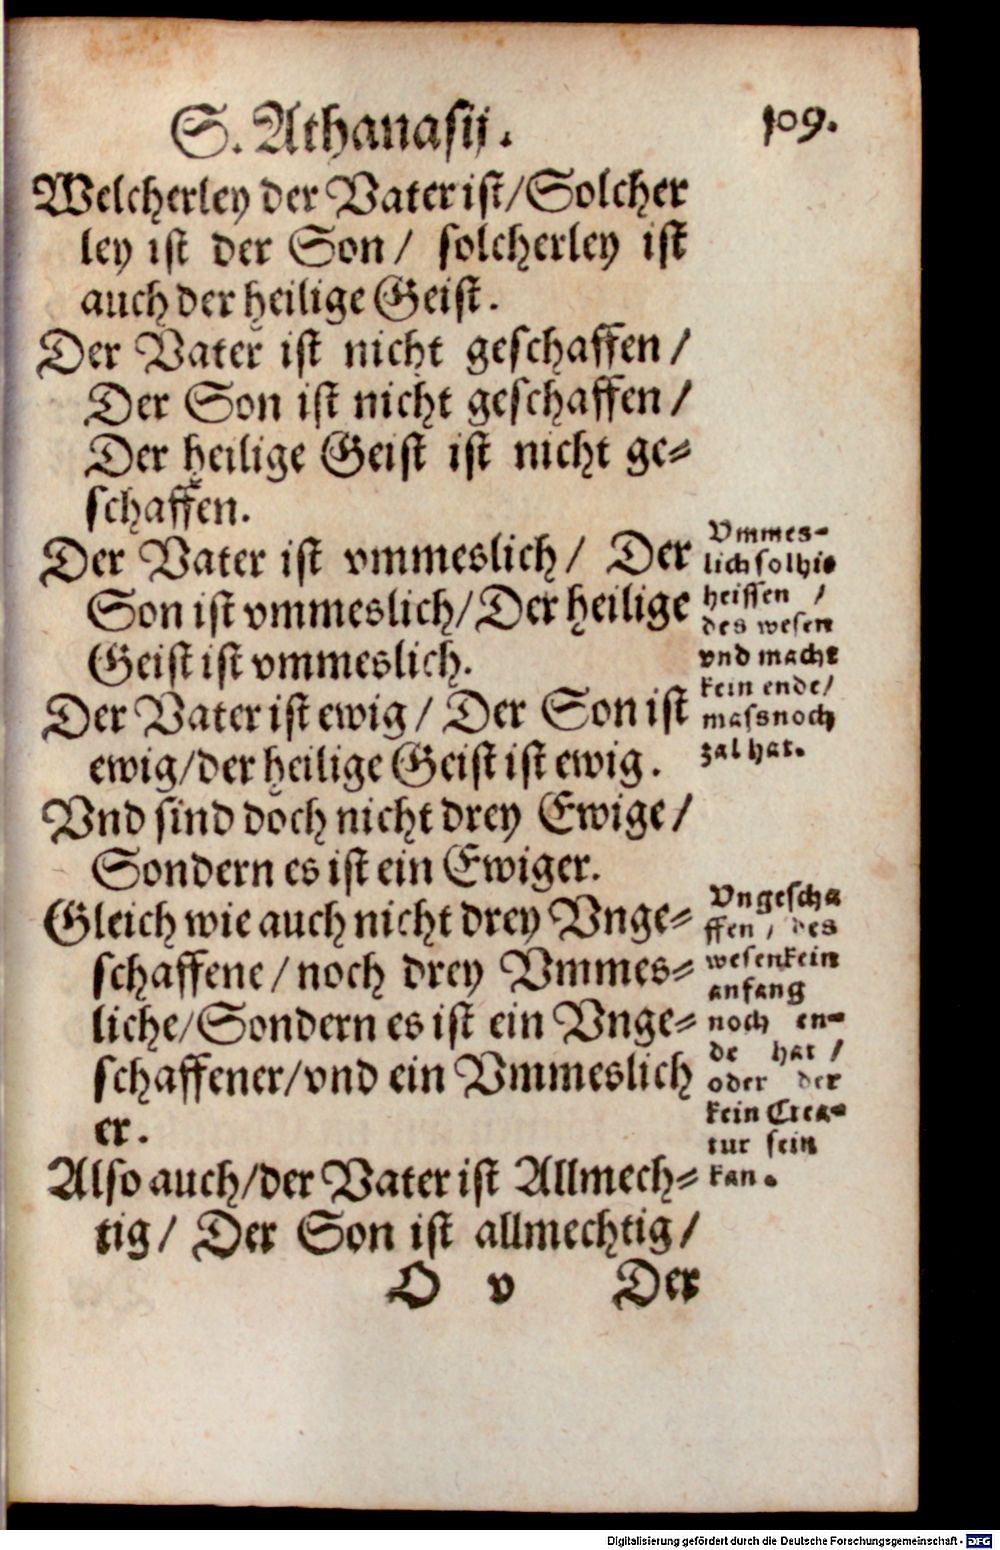 S. Athanasij.
109.
Welcherley der Vater ist/Solcher
ley ist der Son/ solcherley ist
auch der heilige Geist.
Der Vater ist nicht geschaffen/
Der Son ist nicht geschaffen/
Der heilige Geist ist nicht ge-
schaffen.
Der Vater ist vmmeslich/ Der
Son ist vmmeslich/Der heilige
Geist ist vmmeslich.
Der Vater ist ewig/ Der Son ist
ewig/der heilige Geist ist ewig.
Vnd sind doch nicht drey Ewige/
Sondern es ist ein Ewiger.
Gleich wie auch nicht drey Vnge-
schaffene/noch drey Vmmes-
liche/Sondern es ist ein Vnge-
schaffener/vnd ein Vmmeslich
er.
Also auch/der Vater ist Allmech-
tig/ Der Son ist allmechtig/
O v Der
Vmmes-
lich sol hie
heissen /
des wesen
vnd macht
kein ende/
mass noch
zal hat.
Vngescha
ffen / des
wesen kein
anfang
noch en-
de hat /
oder der
kein Crea-
tur sein
kan.
Digitalisierung gefördert durch die Deutsche Forschungsgemeinschaft - DFG